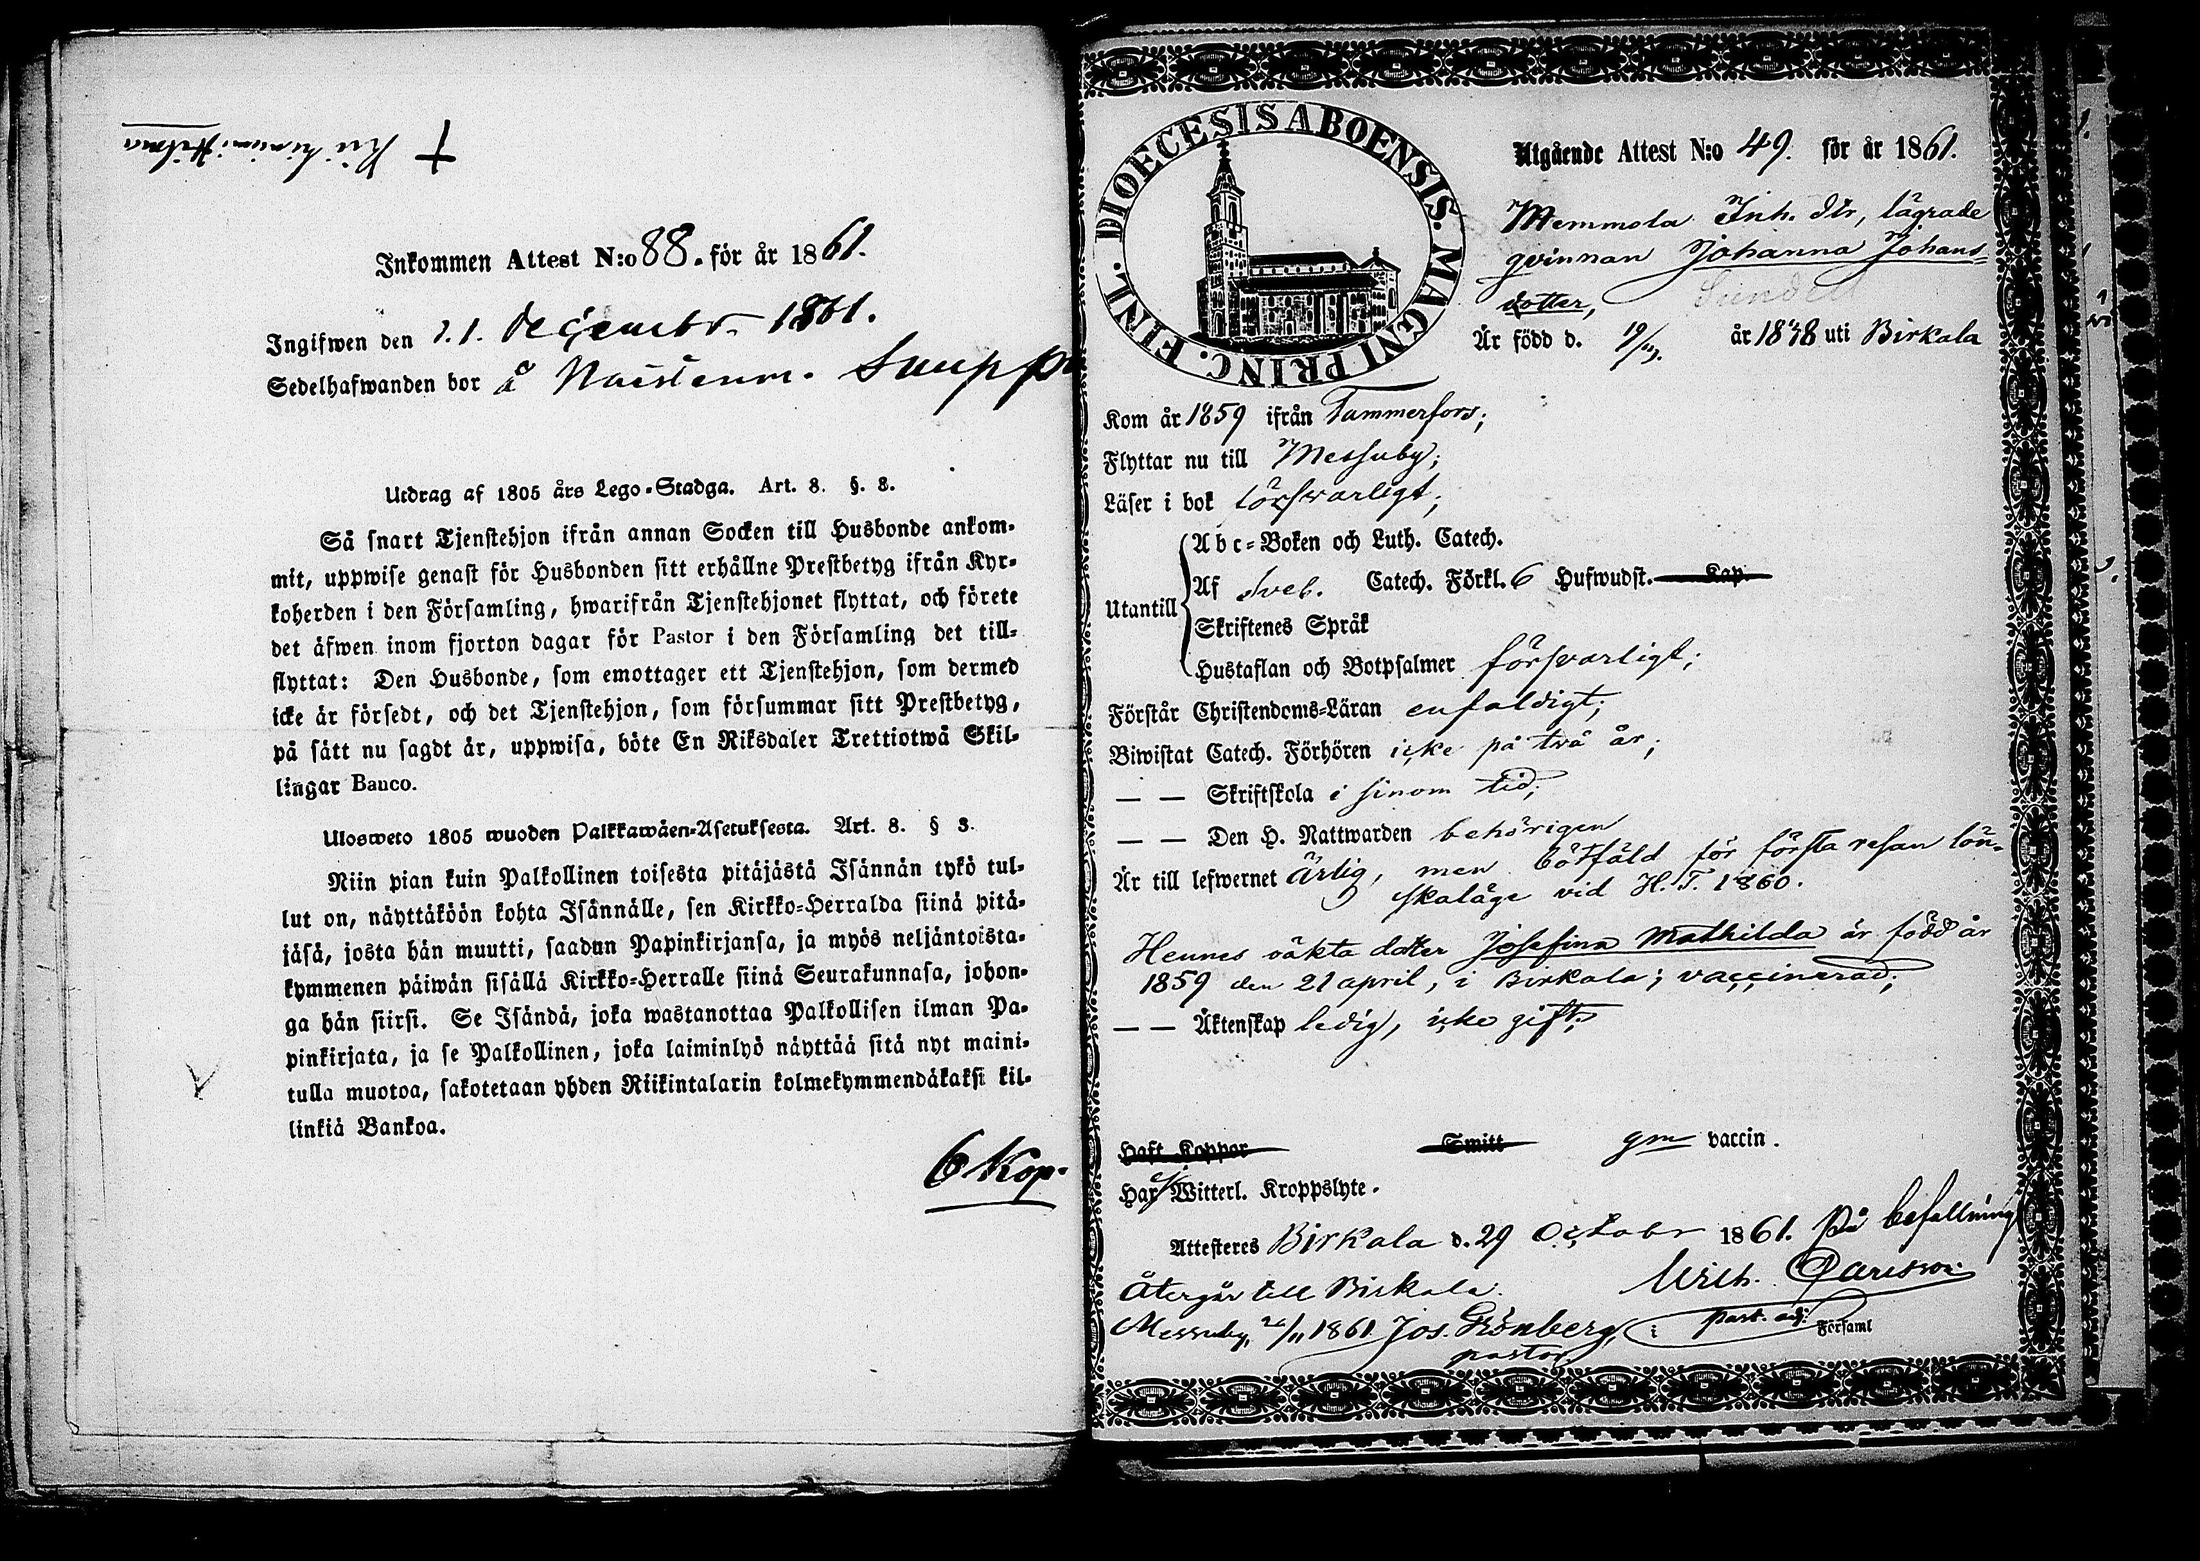 Inkommen Attest N:o 88. för år 1861.
Ingifwen den 21. december 1861.
Sedelhafwanden bor å
Utdrag af 1805 års Lego-Stadga. Art. 8. §. 3.
Så snart Tjenstehjon ifrån annan Socken till Husbonde ankom-
mit, uppwise genast för Husbonden sitt erhållne Prestbetyg ifrån Kyr-
koherden i den Församling, hwarifrån Tjenstehjonet flyttat, och förete
det äfwen inom fjorton dagar för Pastor i den Församling det till-
flyttat: Den Husbonde, som emottager ett Tjenstehjon, som dermed
icke är försedt, och det Tjenstehjon, som försummar sitt Prestbetyg,
på sätt nu sagdt är, uppwisa, böte En Riksdaler Trettiotwå Skil-
lingar Banco.
Ulosweto 1805 wuoden Palkkawäen-Asetuksesta. Art. 8. § 3.
Niin pian kuin Palkollinen toisesta pitäjästä Isännän tykö tul-
lut on, näyttäköön kohta Isännälle, sen Kirkko-Herralda siinä pitä-
jäsä, josta hän muutti, saadun Papinkirjansa, ja myös neljäntoista-
kymmenen päiwän sisällä Kirkko-Herralle siinä Seurakunnasa, johon-
ga hän siirsi. Se Isändä, joka wastanottaa Palkollisen ilman Pa-
pinkirjata, ja se Palkollinen, joka laiminlyö näyttää sitä nyt maini-
tulla muotoa, sakotetaan yhden Riikintalarin kolmekymmendäkaksi kil-
linkiä Bankoa.
6 Kop.
DIOECESIS ABOENSIS. MAGNI PRINC. FINL.
Utgående Attest N:o 49. för år 1861.
Memmola Inh. dtr, lägrade
qvinnan Johanna Johans-
dotter,
Är född d. 19/ år 1838 uti Birkala
Kom år 1859 ifrån Tammerfors;
Flyttar nu till Messuby;
Läser i bok försvarligt;
Utantill
Abc-Boken och Luth. Catech.
Af Sveb. Catech. Förkl. 6 Hufwudst. Kap.
Skriftenes Språk
Hustaflan och Botpsalmer försvarligt;
Förstår Christendoms-Läran enfaldigt;
Biwistat Catech. Förhören icke på två år;
— — Skriftskola i sinom tid;
— — Den H. Nattwarden behörigen
Är till lefwernet ärlig, men bötfäld för första resan lön-
skaläge vid H. T. 1860.
Hennes oäkta dotter Josefina Mathilda är född år
1859 den 21 april, i Birkala; vaccinerad;
— — Äktenskap ledig, icke gift;
Haft Koppor Smitt gm vaccin.
Har ej Witterl. Kroppslyte.
Attesteres Birkala d. 29 October 1861. På befallning
Wilh.
Återgår till Birkala.
past. adj.
Messuby, 26/11 1861 Jos. Grönberg, i Församl
pastor.